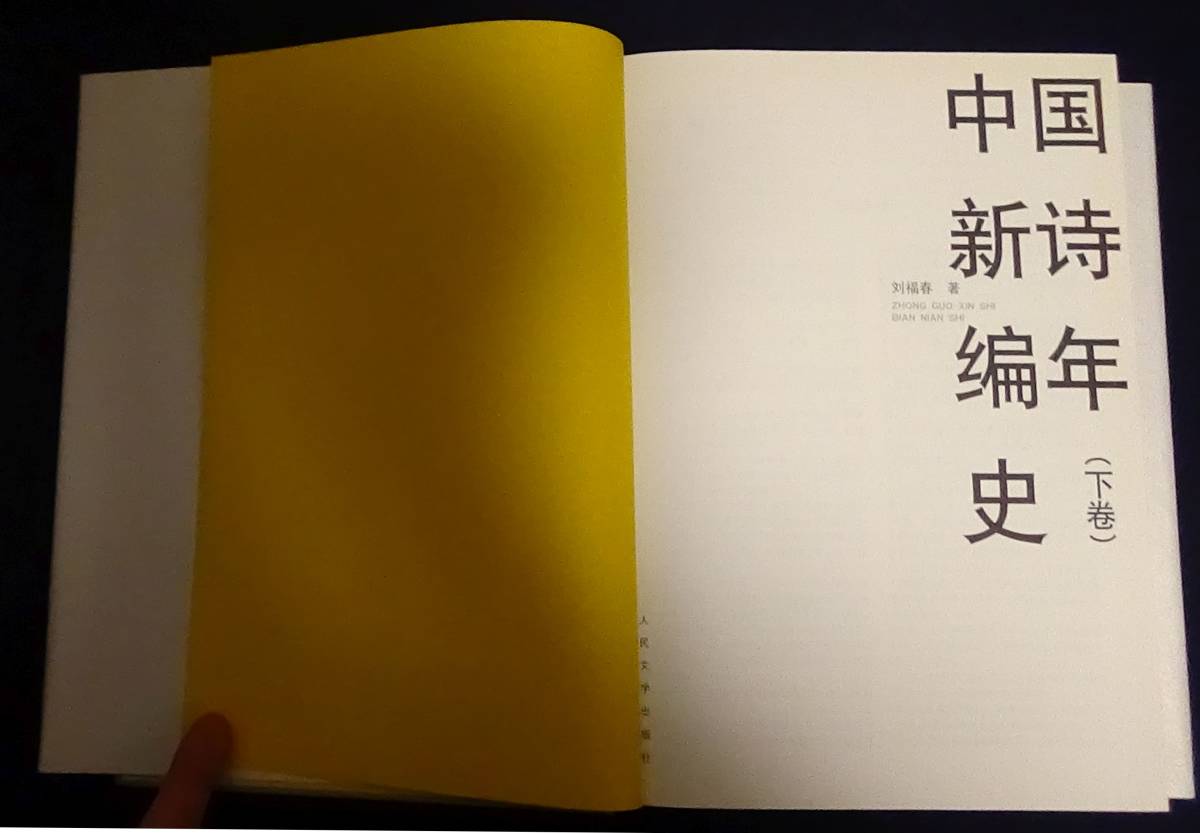 中国
新诗
编年
史
（下卷）
刘福春 著
ZHONG GUO XIN SHI
BIAN NIAN SHI
人民文学出版社